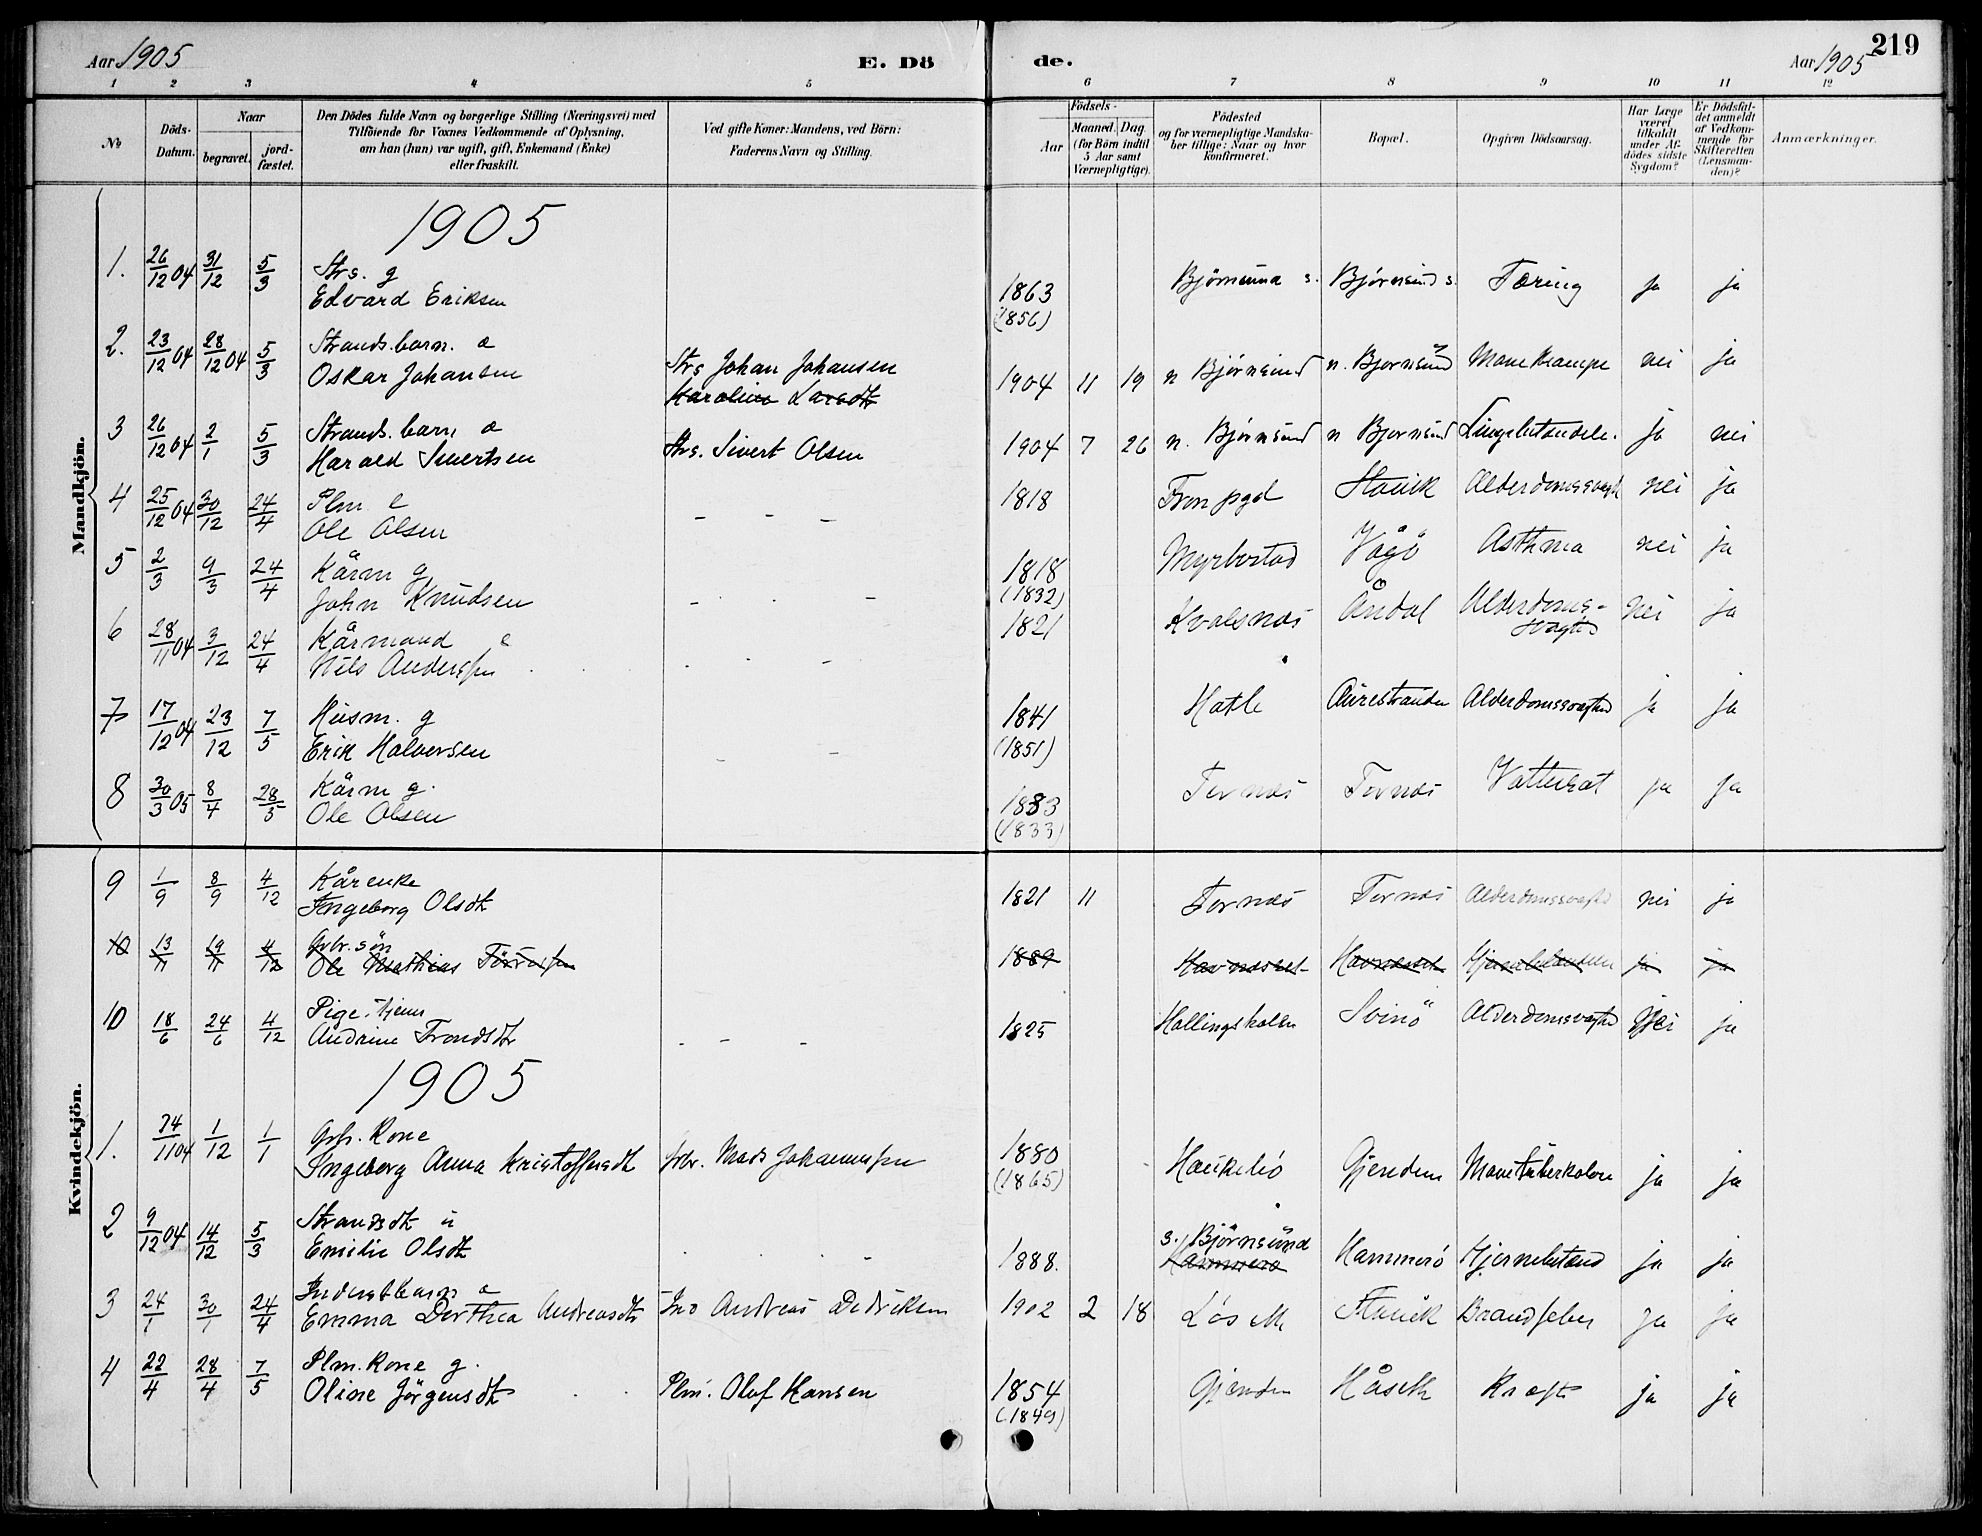 Aar 1905
E. Dö
de.
Aar 1905
219
1 2 3 4 5 6 7 8 9 10 11 12
No
Döds-Datum.
Naar
begravet.
jord-fæstet.
Den Dödes fulde Navn og borgerlige Stilling (Næringsvei) med
Tilföiende for Voxnes Vedkommende af Oplysning,
om han (hun) var ugift, gift, Enkemand (Enke)
eller fraskilt.
Ved gifte Koner: Mandens, ved Börn:
Faderens Navn og Stilling.
Födsels-
Aar
Maaned. Dag.
(for Börn indtil
5 Aar samt
Værnepligtige).
Födested
og for værnepligtige Mandska-
ber tillige: Naar og hvor
konfirmeret.
Bopæl.
Opgiven Dödsaarsag.
Har Læge
været
tilkaldt
under Af-
dödes sidste
Sygdom?
Er Dödsfal-
det anmeldt
af Vedkom-
mende for
Skifteretten
(Lensman-
den)?
Anmærkninger.
Mandkjön.
1905
1. 26/12 04 31/12 5/3 Strs. g
Edvard Eriksen 1863 Björnsund s. Björnsund s. Tæring ja ja
(1856)
2. 23/12 04 28/12 04 5/3 Strands.barn. a
Oskar Johansen Strs Johan Johansen 1904 11 19 n Björnsund n. Björnsund Mavekrampe nei ja
Karoline Larsdtr
3 26/12 04 2/1 5/3 Strands.barn a
Harald Sivertsen Strs. Sivert Olsen 1904 7 26 n. Björnsund n Björnsund Lungebetændelse. ja nei
4 25/12 04 30/12 24/4 Plm e
Ole Olsen - - - 1818 Fron pgd Stavik Alderdomssvagh nei ja
5 2/3 9/3 24/4 Kårm g
John Knudsen - . - 1818 Myrbostad Vågö Asthma nei ja
(1832)
6 28/11 04 3/12 24/4 Kårmand e
Nils Anderssen . . - 1821 Hvalsnæs Åndal Alderdoms-
svaghd nei ja
7 17/12 04 23/12 7/5 Husm. g
Erik Halvorsen 1841 Hatle Aurestranden Alderdomssvaghed ja ja
(1851)
8 30/3 05 8/4 28/5 Kårm g.
Ole Olsen 1883 Tornæs Tornæs Vattersot ja ja
(1833)
9 1/9 8/9 4/12 Kårenke
Ingeborg Olsdtr 1821 11 Tornæs Tornæs Alderdomssvaghd nei ja
10 13/11 19/11 4/12 Gbr. søn
Ole Mathias 1889 ja ja
10 18/6 24/6 4/12 Pige. tjenr
Andrine Trondsdtr - - - 1825 Hollingsholm Svinö Alderdomssvaghed nei ja
Kvindekjön.
1905
1. 24/11 04 1/12 1/1 Gbr. Kone
Ingeborg Anna Kristoffersdtr Gbr. Mads Johannessen 1880 Haukebö Gjendem Mavetuberkulose ja ja
(1865)
2 9/12 04 14/12 5/3 Strandsdtr u
Emilie Olsdtr . . - 1888. s. Björnsund
Hammerö Hammerö Hjernebetænd ja ja
3 24/1 30/1 24/4 Inderstbarn a
Emma Dorthea Andreasdtr Ind Andreas Dedriksen 1902 2 18 Løset Stavik Brandfeber ja ja
4 22/4 28/4 7/5 Plm. Kone g.
Oline Jörgensdtr Plm. Olof Hansen 1854 Gjendem Håseth Kræft ja ja
(1849)